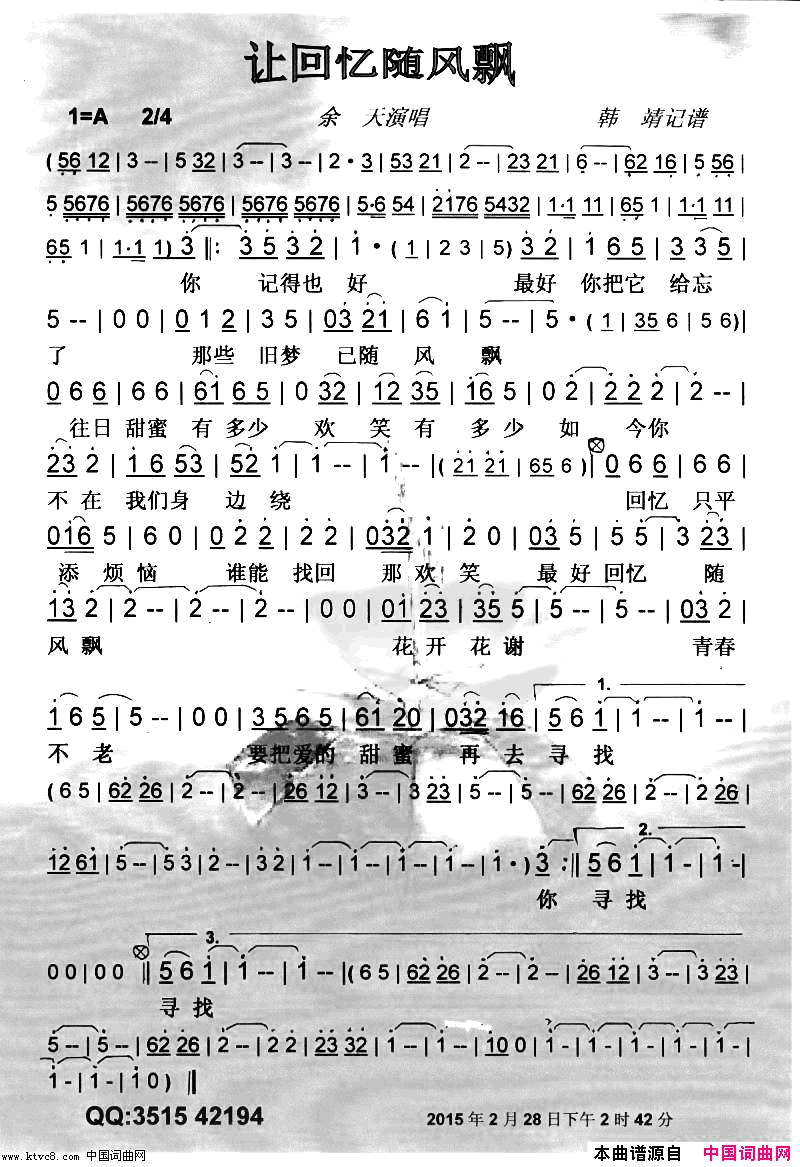 让回忆随风飘
1=A 2/4 余 天演唱 韩 靖记谱
(56 12 | 3 -- | 5 32 | 3 -- | 3 -- | 2 · 3 | 53 21 | 2 -- | 2 -- | 23 21 | 6 -- | 6 -- | 62 16 | 5 56 |
5 5676 | 5676 5676 | 5676 5676 | 5·6 54 | 2176 5432 | 1·1 11 | 65 1 | 1·1 11 |
65 1 | 1·1 1) 3 ‖: 3 53 2 | 1 · ( 1 | 2 3 | 5 ) 3 2 | 1 65 | 3 3 5 |
你 记得也 好 最好 你把它 给忘
5 -- | 0 0 | 0 1 2 | 3 5 | 03 21 | 6 1 | 5 -- | 5 · ( 1 | 35 6 | 5 6)|
了 那些 旧梦 已随 风 飘
0 6 6 | 6 6 | 61 6 5 | 0 32 | 12 35 | 165 5 | 0 2 | 2 2 | 2 -- |
往日 甜蜜 有多少 欢 笑有 多少如 今你
23 2 | 1 6 53 | 52 1 | 1 -- | 1 -- |( 21 21 | 65 6 )| 0 6 6 | 6 6 |
不在 我们身 边绕 回忆 只平
016 5 | 6 0 | 0 2 2 | 2 2 | 032 1 | 2 0 | 03 5 | 5 5 | 3 23 |
添 烦恼 谁能 找回 那欢笑 最好回忆 随
13 2 | 2 -- | 2 -- | 0 0 | 01 23 | 35 5 | 5 -- | 03 2 |
风飘 花开花谢 青春
1 6 5 | 5 -- | 0 0 | 3 5 6 5 | 61 20 | 032 16 | 5 6 1 | 1 -- | 1 -- |
1.
不老 要把爱的 甜蜜 再去寻找
( 6 5 | 62 26 | 2 -- | 2 -- | 26 12 | 3 -- | 3 23 | 5 -- | 5 -- | 62 26 | 2 -- | 2 26 |
12 61 | 5 -- | 5 3 | 2 -- | 32 | 1 -- | 1 -- | 1 -- | 1 -- | 1 · ) 3 :‖ 5 6 1 | 1 -- | 1 -- |
2.
你 寻找
3.
0 0 | 0 0 ‖ 5 6 1 | 1 -- | 1 -- |( 6 5 | 62 26 | 2 -- | 2 -- | 26 12 | 3 -- | 3 23 |
寻找
5 -- | 5 -- | 62 26 | 2 -- | 2 2 | 23 32 | 1 -- | 1 -- | 10 0 | 1 - | 1 - | 1 - | 1 - |
1 - | 1 - | 1 0 ) ‖
QQ:3515 42194 2015年2月28日下午2时42分
www.ktvc8.com 中国词曲网 本曲谱源自 中国词曲网